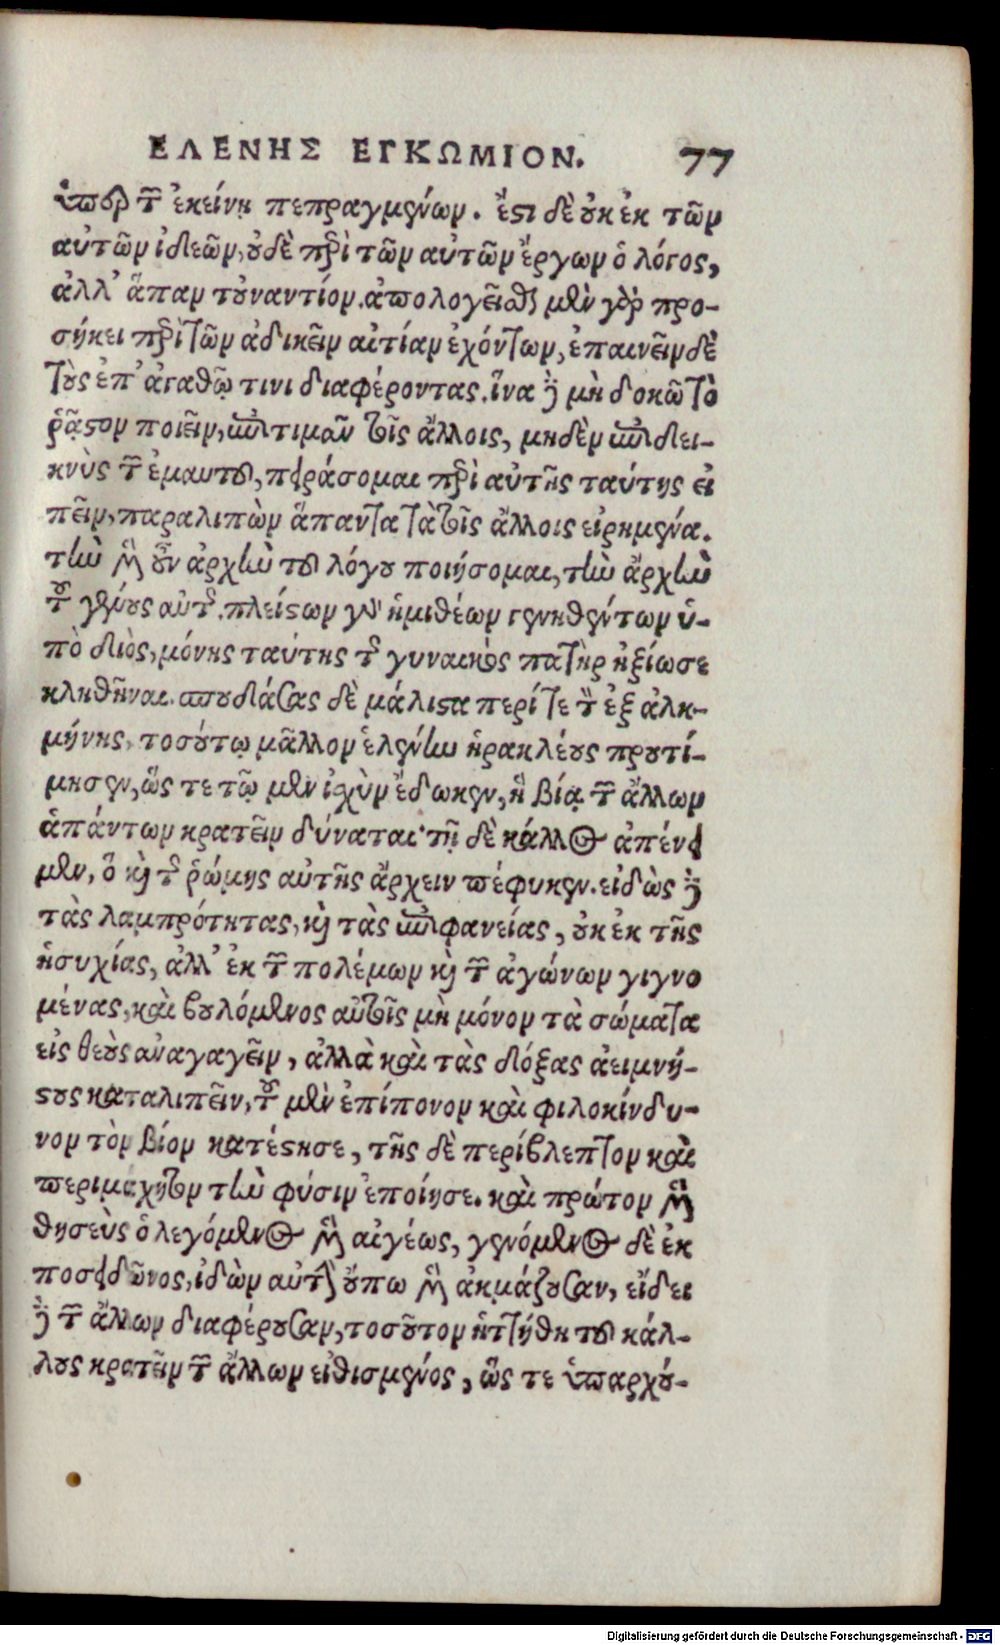 ΕΛΕΝΗΣ ΕΓΚΩΜΙΟΝ. 77
ὑπὲρ τῶν ἐκείνῃ πεπραγμένων. ἔςι δὲ οὐκ ἐκ τῶν
αὐτῶν ἰδεῶν, οὐδὲ περὶ τῶν αὐτῶν ἔργων ὁ λόγος,
ἀλλ' ἅπαν τοὐναντίον. ἀπολογεῖσθαι μὲν γὰρ προ-
σήκει περὶ τῶν ἀδικεῖν αἰτίαν ἐχόντων, ἐπαινεῖν δὲ
τοὺς ἐπ' ἀγαθῷ τινι διαφέροντας. ἵνα δὲ μὴ δοκῶ τὸ
ῥᾷςον ποιεῖν, ἐπιτιμᾶν τοῖς ἄλλοις, μηδὲν ἐπιδει-
κνὺς τῶν ἐμαυτοῦ, πειράσομαι περὶ αὐτῆς ταύτης εἰ
πεῖν, παραλιπὼν ἅπαντα τὰ τοῖς ἄλλοις εἰρημένα.
τὴν μὲν οὖν ἀρχὴν τοῦ λόγου ποιήσομαι, τὴν ἀρχὴν
τοῦ γένους αὐτῆς. πλείςων γὰρ ἡμιθέων γεννηθέντων ὑ-
πὸ διὸς, μόνης ταύτης τῆς γυναικὸς πατὴρ ἠξίωσε
κληθῆναι. σπουδάσας δὲ μάλιςα περί τε τὸν ἐξ ἀλκ-
μήνης, τοσούτῳ μᾶλλον ἑλένην ἡρακλέους προυτί-
μησεν, ὥς τε τῷ μὲν ἰσχὺν ἔδωκεν, ἣ βίᾳ τῶν ἄλλων
ἁπάντων κρατεῖν δύναται· τῇ δὲ κάλλος ἀπένει
μεν, ὃ καὶ τῆς ῥώμης αὐτῆς ἄρχειν πέφυκεν. εἰδὼς δὲ
τὰς λαμπρότητας, καὶ τὰς ἐπιφανείας, οὐκ ἐκ τῆς
ἡσυχίας, ἀλλ' ἐκ τῶν πολέμων καὶ τῶν ἀγώνων γιγνο
μένας, καὶ βουλόμενος αὐτοῖς μὴ μόνον τὰ σώματα
εἰς θεοὺς ἀναγαγεῖν, ἀλλὰ καὶ τὰς δόξας ἀειμνή-
ςους καταλιπεῖν, τοῦ μὲν ἐπίπονον καὶ φιλοκίνδυ-
νον τὸν βίον κατέςησε, τῆς δὲ περίβλεπτον καὶ
περιμάχητον τὴν φύσιν ἐποίησε. καὶ πρώτον μὲν
θησεὺς ὁ λεγόμενος μὲν αἰγέως, γενόμενος δὲ ἐκ
ποσειδῶνος, ἰδὼν αὐτὴν οὔπω μὲν ἀκμάζουσαν, εἴδει
δὲ τῶν ἄλλων διαφέρουσαν, τοσοῦτον ἡττήθη τοῦ κάλ-
λους κρατεῖν τῶν ἄλλων εἰθισμένος, ὥς τε ὑπαρχού-
Digitalisierung gefördert durch die Deutsche Forschungsgemeinschaft - DFG